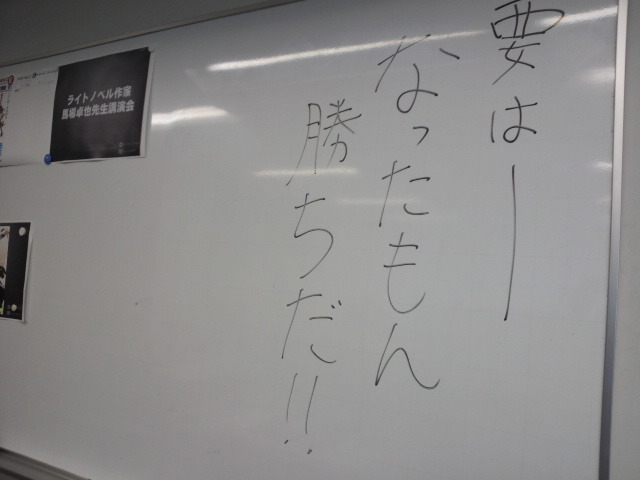 要はー
なったもん
勝ちだ!!
ライトノベル作家
馬場卓也先生講演会